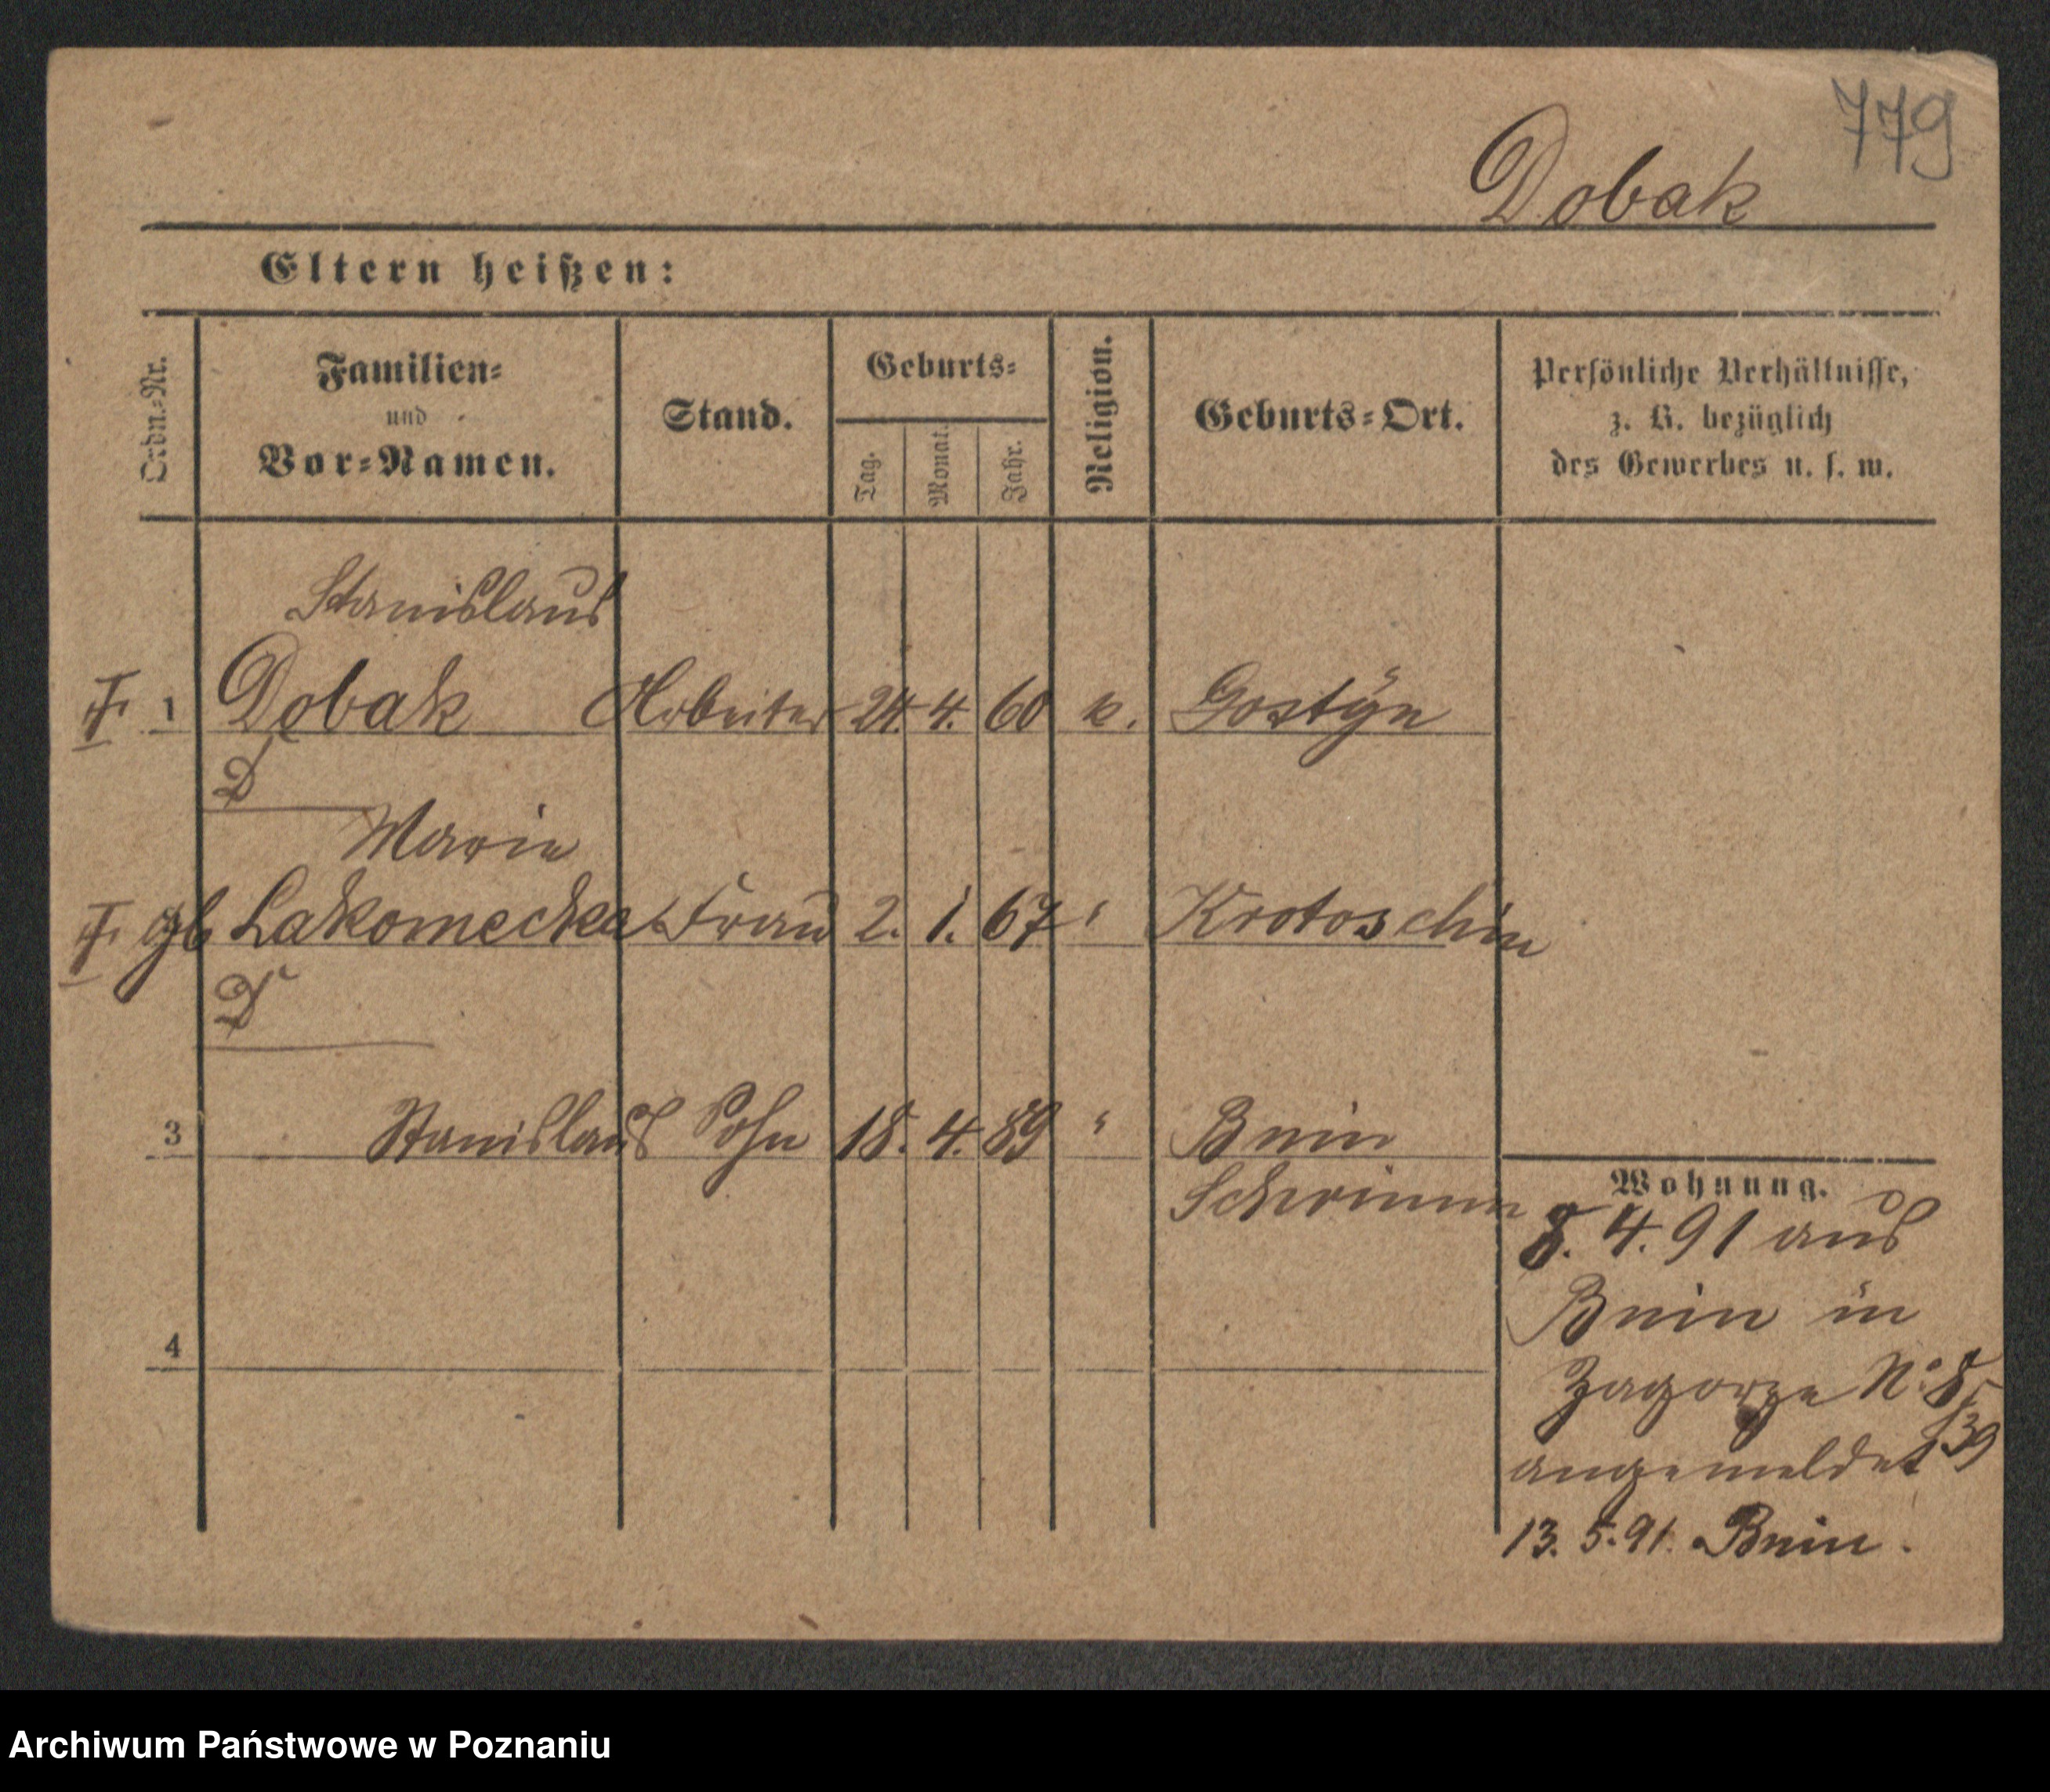 779
Dobak
Eltern heißen:
Ordn.-Nr.
Familien-
und
Vor-Namen.
Stand.
Geburts-
Tag.
Monat.
Jahr.
Religion.
Geburts-Ort.
Persönliche Verhältnisse,
z. B. bezüglich
des Gewerbes u. s. w.
Stanislaus
1 Dobak Arbeiter 24. 4. 60 k. Gostyn
D
Marie
gb Lakomecka Frau 2. 1. 67 " Krotoschin
D
3 Stanislaus Sohn 18. 4. 89 " Bnin
Schrimm
4
Wohnung.
8. 4. 91 aus
Bnin in
Zagorze No. 8
/39
angemeldet
13. 5. 91. Bnin.
Archiwum Państwowe w Poznaniu